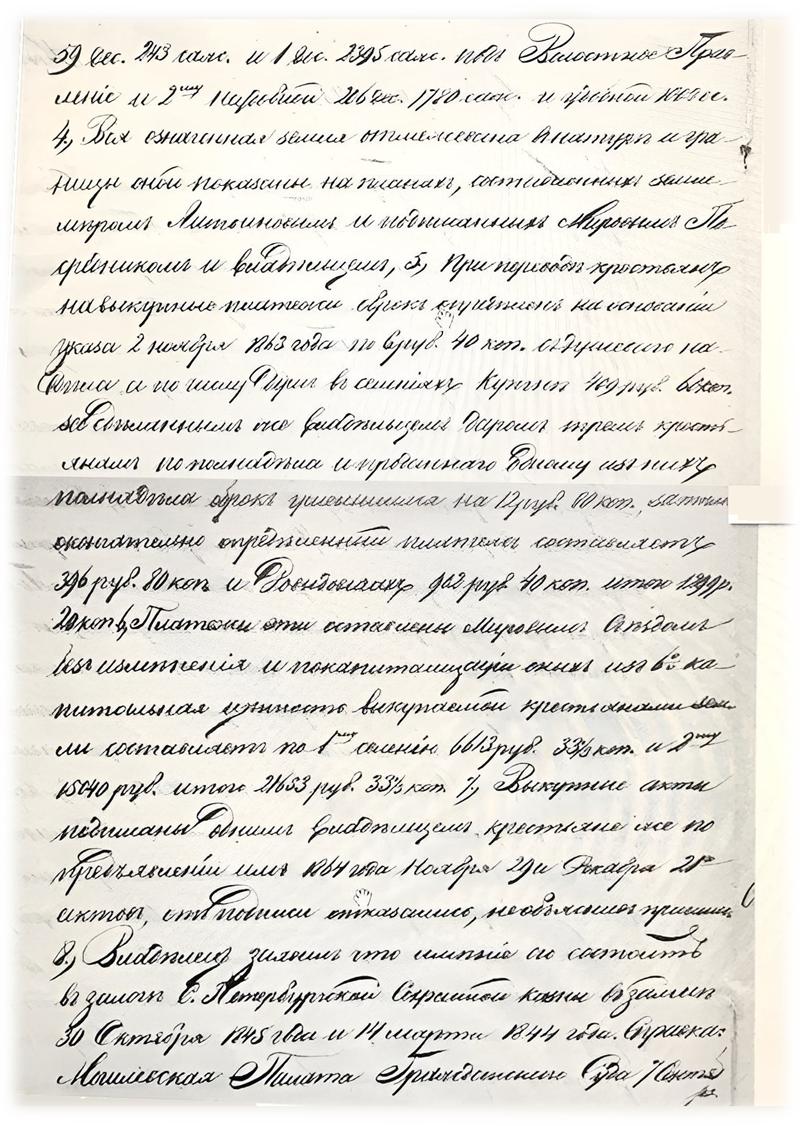 59 дес. 243 саж. и 1 дес. 2395 саж. подъ Волостное Прав-
леніе и 2му 206 дес. 1780 саж. и
4., Вся означенная земля отмежевана в натурѣ и гра-
ницы оной показаны на планахъ, составленныхъ земле-
мѣромъ и подписанныхъ Мировымъ По-
средникомъ и владѣльцемъ, 5., При переводѣ крестьянъ
на выкупные платежи оброкъ на основаніи
указа 2 ноября 1863 года по 6 руб. 40 коп. съ душеваго на-
дѣла а по числу душъ въ селеніяхъ 409 руб. 60 коп.
за сдѣланнымъ же владѣльцемъ даромъ тремъ кресть-
янамъ по полнадѣла и одному изъ нихъ
полнадѣла оброкъ уменьшился на 12 руб. 80 коп., затѣмъ
окончательно опредѣленный платежъ составляетъ
396 руб. 80 коп и 902 руб. 40 коп. итого 1299 р.
20 коп 6, Платежи эти оставлены Мировымъ Съѣздомъ
безъ измѣненія и по капитализаціи оныхъ изъ 6% ка-
питальная цѣнность выкупаемой крестьянами зем-
ли составляетъ по 1му селенію 6613 руб. 33⅓ коп. и 2му
15040 руб. итого 21653 руб. 33⅓ коп 7, Выкупные акты
подписаны однимъ владѣльцемъ крестьяне же по
предъявленіи имъ 1864 года Ноября 29 и Декабря 21го
актовъ, отъ подписи отказались, не объяснивъ причины
8., Владѣлецъ заявилъ что имѣніе его состоитъ
въ залогѣ С. Петербургской Сохранной казны въ займѣ
30 Октября 1845 года и 14 марта 1844 года. Справка:
Могилевская Палата Гражданскаго Суда 7 Сентяб
ря